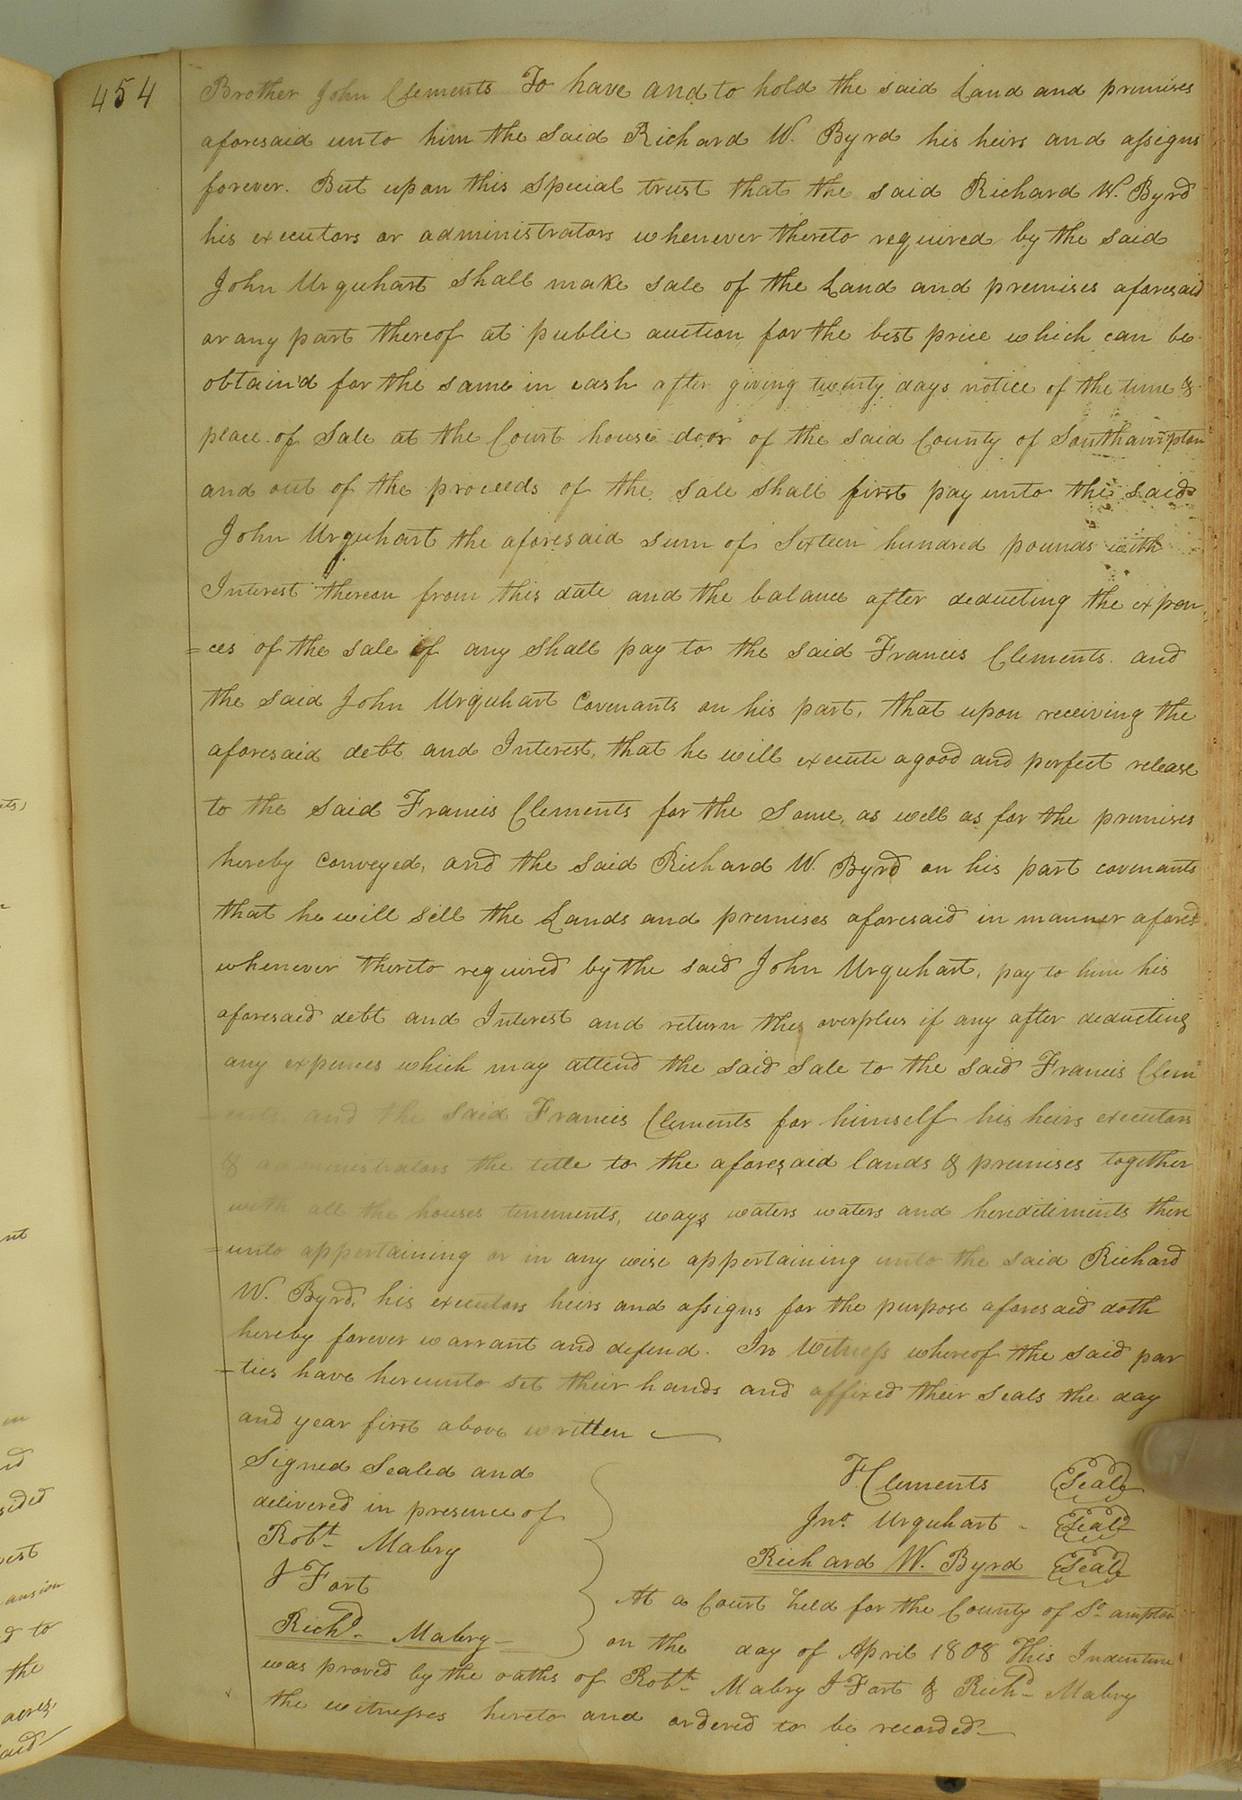 454
Brother John Clements To have and to hold the said Land and premises
aforesaid unto him the said Richard W. Byrd his heirs and assigns
forever. But upon this special trust that the said Richard W. Byrd
his executors or administrators whenever thereto required by the said
John Urquhart shall make sale of the Land and premises aforesaid
or any part thereof at public auction for the best price which can be
obtain'd for the same in cash after giving twenty days notice of the time &
place of Sale at the Court house door of the said County of Southampton
and out of the proceeds of the sale shall first pay unto the said
John Urquhart the aforesaid sum of Sixteen hundred pounds with
Interest thereon from this date and the balance after deducting the expen
=ces of the sale if any shall pay to the said Francis Clements. and
the said John Urquhart Covenants on his part, that upon receiving the
aforesaid debt and Interest, that he will execute a good and perfect release
to the said Francis Clements for the Same, as well as for the premises
hereby conveyed, and the said Richard W. Byrd on his part covenants
that he will sell the Lands and premises aforesaid in manner afores.d
whenever thereto required by the said John Urquhart, pay to him his
aforesaid debt and Interest and return the overplus if any after deducting
any expences which may attend the said Sale to the said Francis Clem
=ents and the said Francis Clements for himself his heirs executors
& administrators the title to the aforesaid lands & premises together
with all the houses tenements, ways waters waters and hereditiments there
=unto appertaining or in any wise appertaining unto the said Richard
W. Byrd, his executors heirs and assigns for the purpose aforesaid doth
hereby forever warrant and defend. In Witness whereof the said par
=ties have hereunto set their hands and affixed their Seals the day
and year first above written
Signed Sealed and
delivered in presence of
Robt. Mabry
J Fort
Richd. Mabry
F. Clements Seal
Jno. Urquhart Seal
Richard W. Byrd Seal
At a Court held for the County of So.ampton
on the day of April 1808 This Indenture
was proved by the oaths of Robt. Mabry J Fort & Richd. Mabry
the witnesses hereto and ordered to be recorded